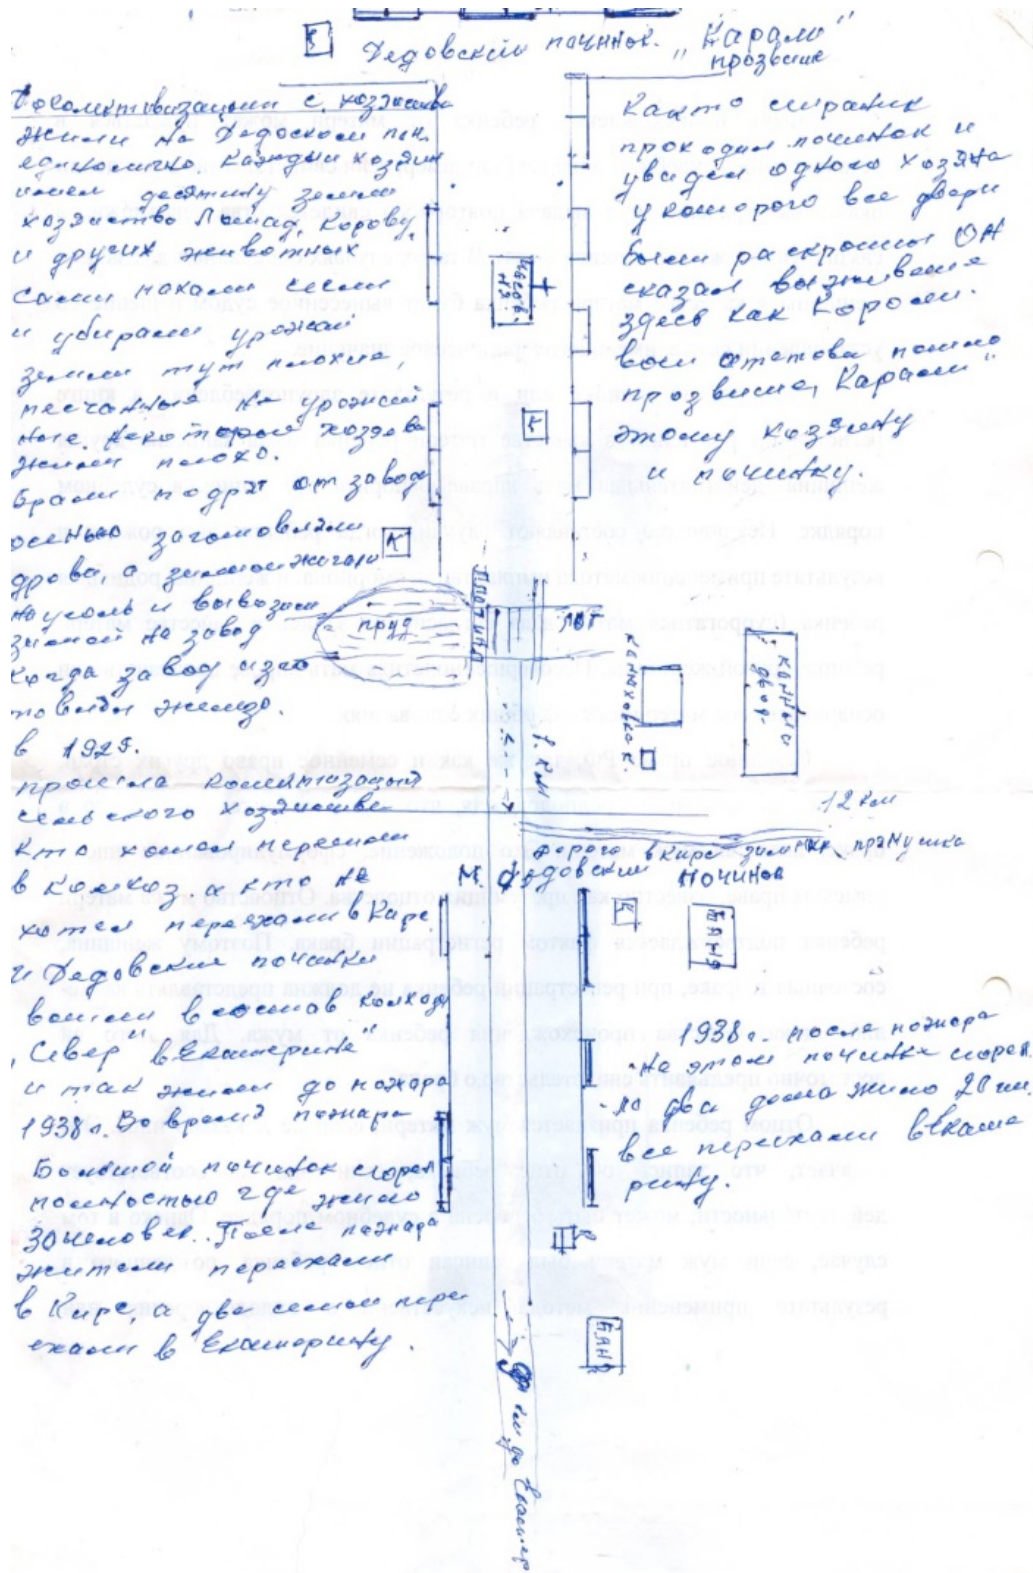 Дедовский починок. „Карали"
прозвище
До колективизации с. хозяйства
жили на Дедоском поч.
единолично каждый хозяин
имел десятину земли
хозяйство Лошад, корову,
и других животных,
сами пахали сеяли
и убирали урожай
земли тут плохие,
песчанные не урожай
жили плохо.
Брали подрят от завод
осенью заготовляли
дрова а зимой жигали
на уголь и вывозили
зимой на завод
когда завод изго
железо.
в 1925.
прошла
сельского хозяйства
кто хотел перешол
в колхоз. а кто не
хотел переехали в Кирс
и Дедовские починки
вошли в состав колхоза
„Север" в Екатерине
и так жили до пожара
1938 г. Во время пожара
Большой починок сгорел
полностью где жило
30 человек. После пожара
жители переехали
в Кирс, а две семьи пере
ехали в Екатерину.
Както страник
проходил починок и
увидел одного хозяина
у которого все двери
были раскрыты ОН
сказал вы живете
здесь как Короли.
вот ототова пошло
прозвище „Карали"
этому хозяину
и починку.
Часов.
НЯ
К
К
пруд
Плотина
ЛОГ
1 км
конного
двор
12 км
дорога в Кирс
М. Дедовский починок
К
БАНЯ
1938 г. после пожара
на этом починке сгорел.
два дома жило 20 чел.
все переехали в Екате
рину.
К
БАНЯ
км. до Екатер